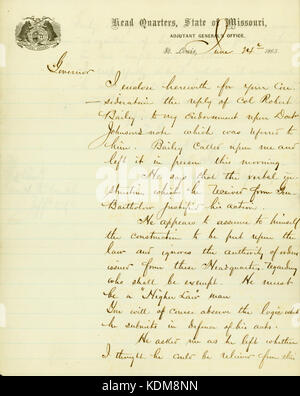 Head Quarters, State of Missouri,
ADJUTANT GENERAL'S OFFICE.
St. Louis, June 24th 1863
Governor
I enclose herewith for your Con
sideration the reply of Col Robert
Bailey, to my endorsement upon Doct
Johnson's note which was referred to
him. Bailey called upon me and
left it in person this morning
He say that the verbal in
struction which he received from Gen
Bartholow justified his action.
He appears to assume to himself
the construction to be put upon the
law and ignores the authority of orders
issued from these Headquarters regarding
who shall be exempt. He must
be a "Higher Law" man
You will of course observe the logic which
he submits in defense of his acts.
He asked me as he left whether
I thought he could be relieved from this
alamy
Image ID: KDM8NN
www.alamy.com